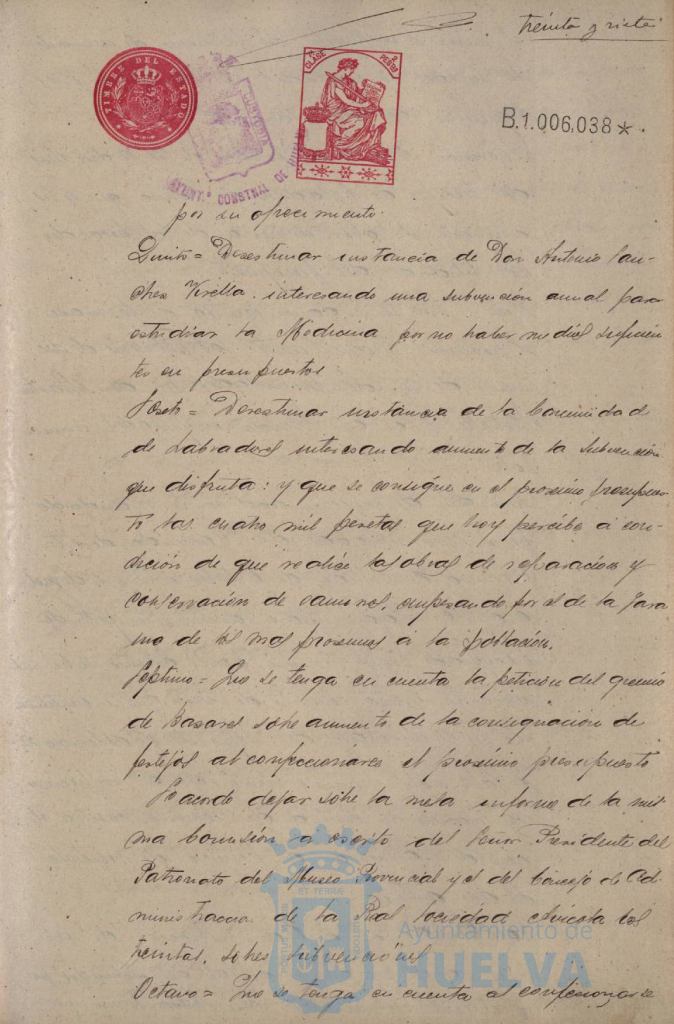 treinta y siete
TIMBRE DEL ESTADO
CLASE
PESETAS
AYUNT.º CONSTNAL DE HUELVA
B.1.006.038*
por su ofrecimiento.
Quinto = Desestimar instancia de Don Antonio San-
chez interesando una subvención anual para
estudiar la Medicina por no haber medios suficien
tes en presupuestos
Sexto = Desestimar instancia de la Comunidad
de Labradores interesando aumento de la subvención
que disfruta: y que se consigne en el proximo presupues
to las cuatro mil pesetas que hoy percibe á con-
dición de que realice las obras de reparación y
conservación de caminos, empezando por el de
mo de los mas proximos á la población.
Septimo = Que se tenga en cuenta la petición del gremio
de Bazares sobre aumento de la consignación de
festejos al confeccionarse el proximo presupuesto
Se acordo dejar sobre la mesa informe de la mis
ma Comisión a escrito del Señor Presidente del
Patronato del Museo Provincial y el del Consejo de Ad-
ministracion de la Real Sociedad Colombina
sobre subvenciones
Octavo = Que se tenga en cuenta al confeccionarse
Ayuntamiento de
HUELVA